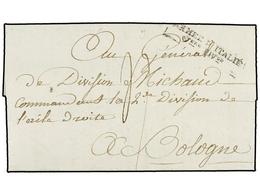 ARMÉE D'ITALIE
Au Général
de Division Michaud
commandant la 2.de Division de
l'aile droite
A Bologne